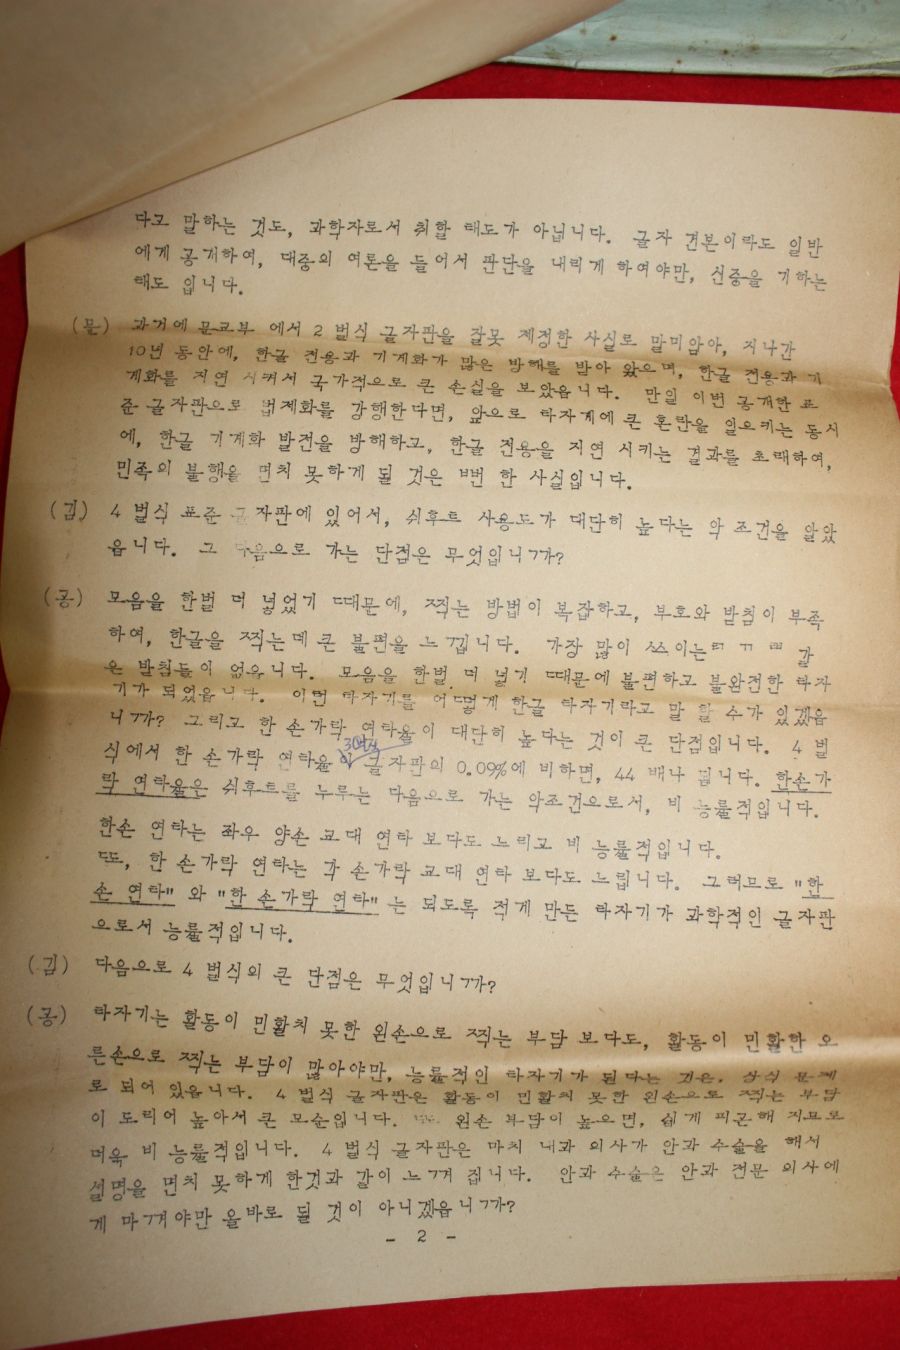 다고 말하는 것도, 과학자로서 취할 태도가 아닙니다. 글자 견본이라도 일반
에게 공개하여, 대중의 여론을 들어서 판단을 내리게 하여야만, 신중을 기하는
태도 입니다.
(문) 과거에 문교부 에서 2 벌식 글자판을 잘못 제정한 사실로 말미암아, 지나간
10년 동안에, 한글 전용과 기계화가 많은 방해를 받아 왔으며, 한글 전용과 기
계화를 지연 시켜서 국가적으로 큰 손실을 보았읍니다. 만일 이번 공개한 표
준 글자판으로 법제화를 강행한다면, 앞으로 타자계에 큰 혼란을 일으키는 동시
에, 한글 기계화 발전을 방해하고, 한글 전용을 지연 시키는 결과를 초래하여,
민족의 불행을 면치 못하게 될 것은 뻔 한 사실입니다.
(김) 4 벌식 표준 글자판에 있어서, 쉬후트 사용도가 대단히 높다는 악 조건을 알았
읍니다. 그 다음으로 가는 단점은 무엇입니까?
(공) 모음을 한벌 더 넣었기 때문에, 찍는 방법이 복잡하고, 부호와 받침이 부족
하여, 한글을 찍는데 큰 불편을 느낍니다. 가장 많이 쓰이는 ㄲ 같
은 받침들이 없읍니다. 모음을 한벌 더 넣기 때문에 불편하고 불완전한 타자
기가 되었읍니다. 이런 타자기를 어떻게 한글 타자기라고 말 할 수가 있겠읍
니까? 그리고 한 손가락 연타율이 대단히 높다는 것이 큰 단점입니다. 4 벌
식에서 한 손가락 연타율이 글자판의 0.09%에 비하면, 44 배나 됩니다. 한손가
락 연타율은 쉬후트를 누루는 다음으로 가는 악조건으로서, 비 능률적입니다.
한손 연타는 좌우 양손 교대 연타 보다도 느리고 비 능률적입니다.
또, 한 손가락 연타는 각 손가락 교대 연타 보다도 느립니다. 그러므로 "한
손 연타" 와 "한 손가락 연타" 는 되도록 적게 만든 타자기가 과학적인 글자판
으로서 능률적입니다.
(김) 다음으로 4 벌식의 큰 단점은 무엇입니까?
(공) 타자기는 활동이 민활치 못한 왼손으로 찍는 부담 보다도, 활동이 민활한 오
른손으로 찍는 부담이 많아야만, 능률적인 타자기가 된다는 것은, 상식 문제
로 되어 있읍니다. 4 벌식 글자판은 활동이 민활치 못한 왼손으로 찍는 부담
이 도리어 높아서 큰 모순입니다. 왼손 부담이 높으면, 쉽게 피곤해 지므로
더욱 비 능률적입니다. 4 벌식 글자판은 마치 내과 의사가 안과 수술을 해서
실명을 면치 못하게 한것과 같이 느껴 집니다. 안과 수술은 안과 전문 의사에
게 마껴야만 올바로 될 것이 아니겠읍니까?
- 2 -